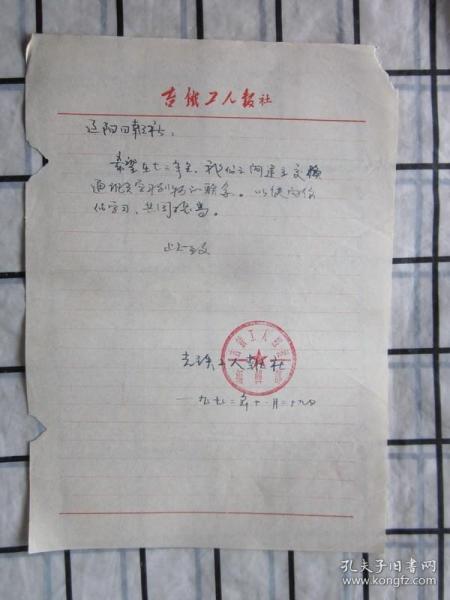 吉铁工人报社
辽阳日报社：
希望在七三年里，我们之间建立交换
以便向你
们学习，共同提高。
此致
吉铁工人报社
一九七二年十一月二十九日
孔夫子旧书网
www.kongfz.com